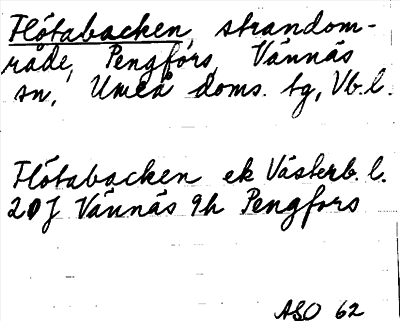 Flötabacken, strandom-
råde, Pengfors, Vännäs
sn, Umeå doms. tg, Vb. l.
Flötabacken ek Västerb. l.
20J Vännäs 9h Pengfors
ASO 62